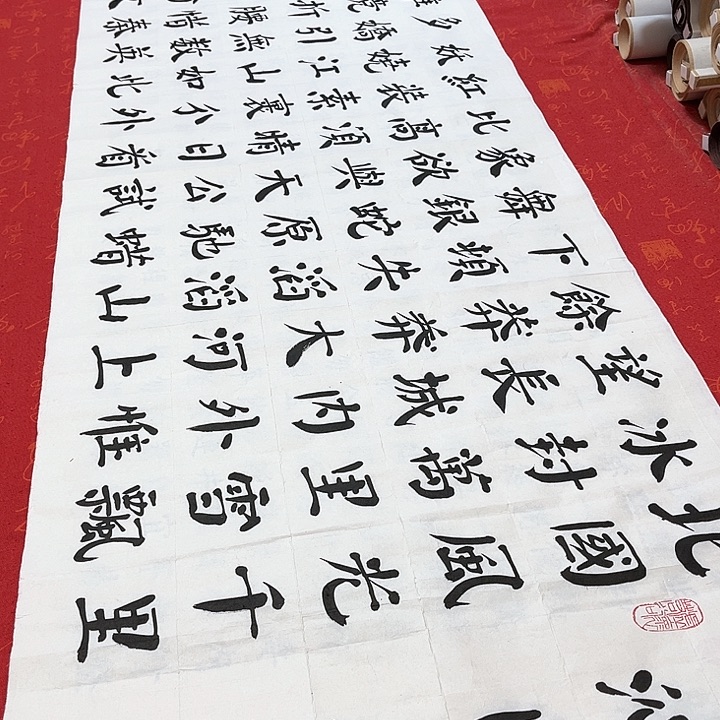 北國風光千里
冰封萬里雪飄
望長城内外惟
餘莽莽大河上
下頓失滔滔山
舞銀蛇原馳蜡
象欲與天公試
比高須晴日看
紅裝素裹分外
妖嬈江山如此
多嬌引無數英
折腰惜秦